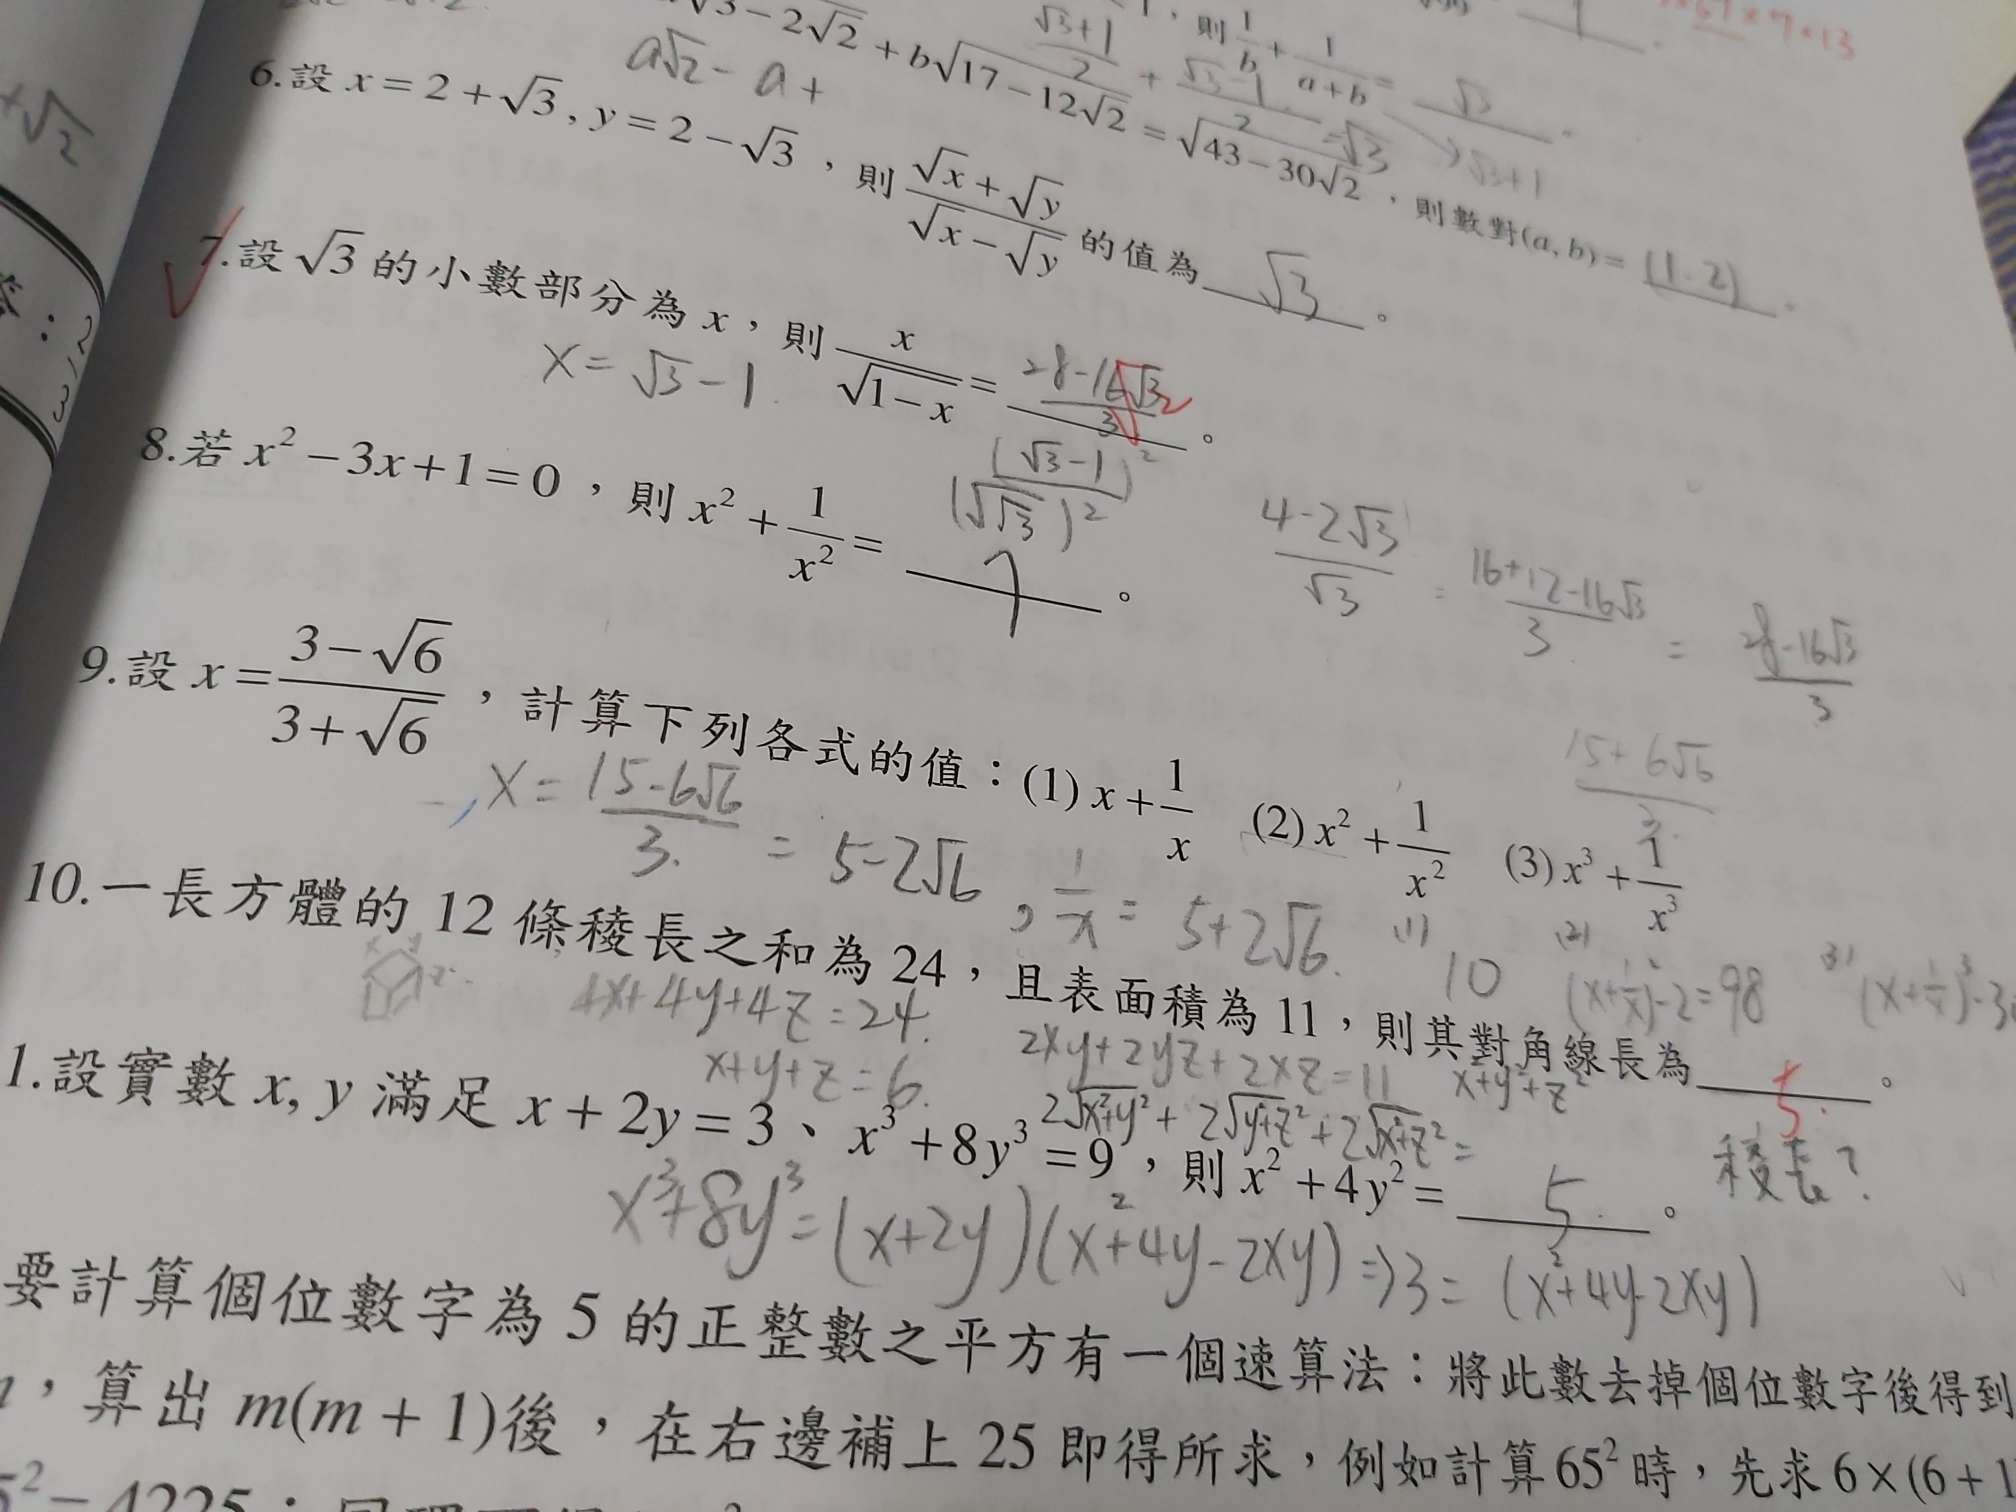 √3−2√2 + b√17−12√2 = √43−30√2，則數對(a, b) = (1.2)
則 1/b + 1/(a+b) = √3
(√3+1)/2 + (√3-1)/2 = √3
√3+1
a√2 - a +
+√2
6.設 x = 2 + √3, y = 2 − √3，則 (√x + √y)/(√x − √y) 的值為 √3 。
7.設 √3 的小數部分為 x，則 x/√(1−x) = (28-16√3)/3 。
x = √3 - 1
(√3-1)²/(√√3)²
(4-2√3)/√3 = (16+12-16√3)/3 = (28-16√3)/3
8.若 x² − 3x + 1 = 0，則 x² + 1/x² = 7 。
9.設 x = (3−√6)/(3+√6)，計算下列各式的值：(1) x + 1/x (2) x² + 1/x² (3) x³ + 1/x³
x = (15-6√6)/3 = 5-2√6, 1/x = 5+2√6
(15+6√6)/3
(1) 10 (2) (x+1/x)²-2=98 (3) (x+1/x)³-3
10.一長方體的 12 條稜長之和為 24，且表面積為 11，則其對角線長為 5 。
4x+4y+4z=24
x+y+z=6
2xy+2yz+2xz=11
x²+y²+z²
2√x²+y² + 2√y²+z² + 2√x²+z² =
稜長?
1.設實數 x, y 滿足 x + 2y = 3、x³ + 8y³ = 9，則 x² + 4y² = 5 。
x³+8y³ = (x+2y)(x²+4y-2xy) ⇒ 3 = (x²+4y-2xy)
要計算個位數字為 5 的正整數之平方有一個速算法：將此數去掉個位數字後得到
，算出 m(m + 1)後，在右邊補上 25 即得所求，例如計算 65² 時，先求 6 × (6 + 1
5² = 4225；